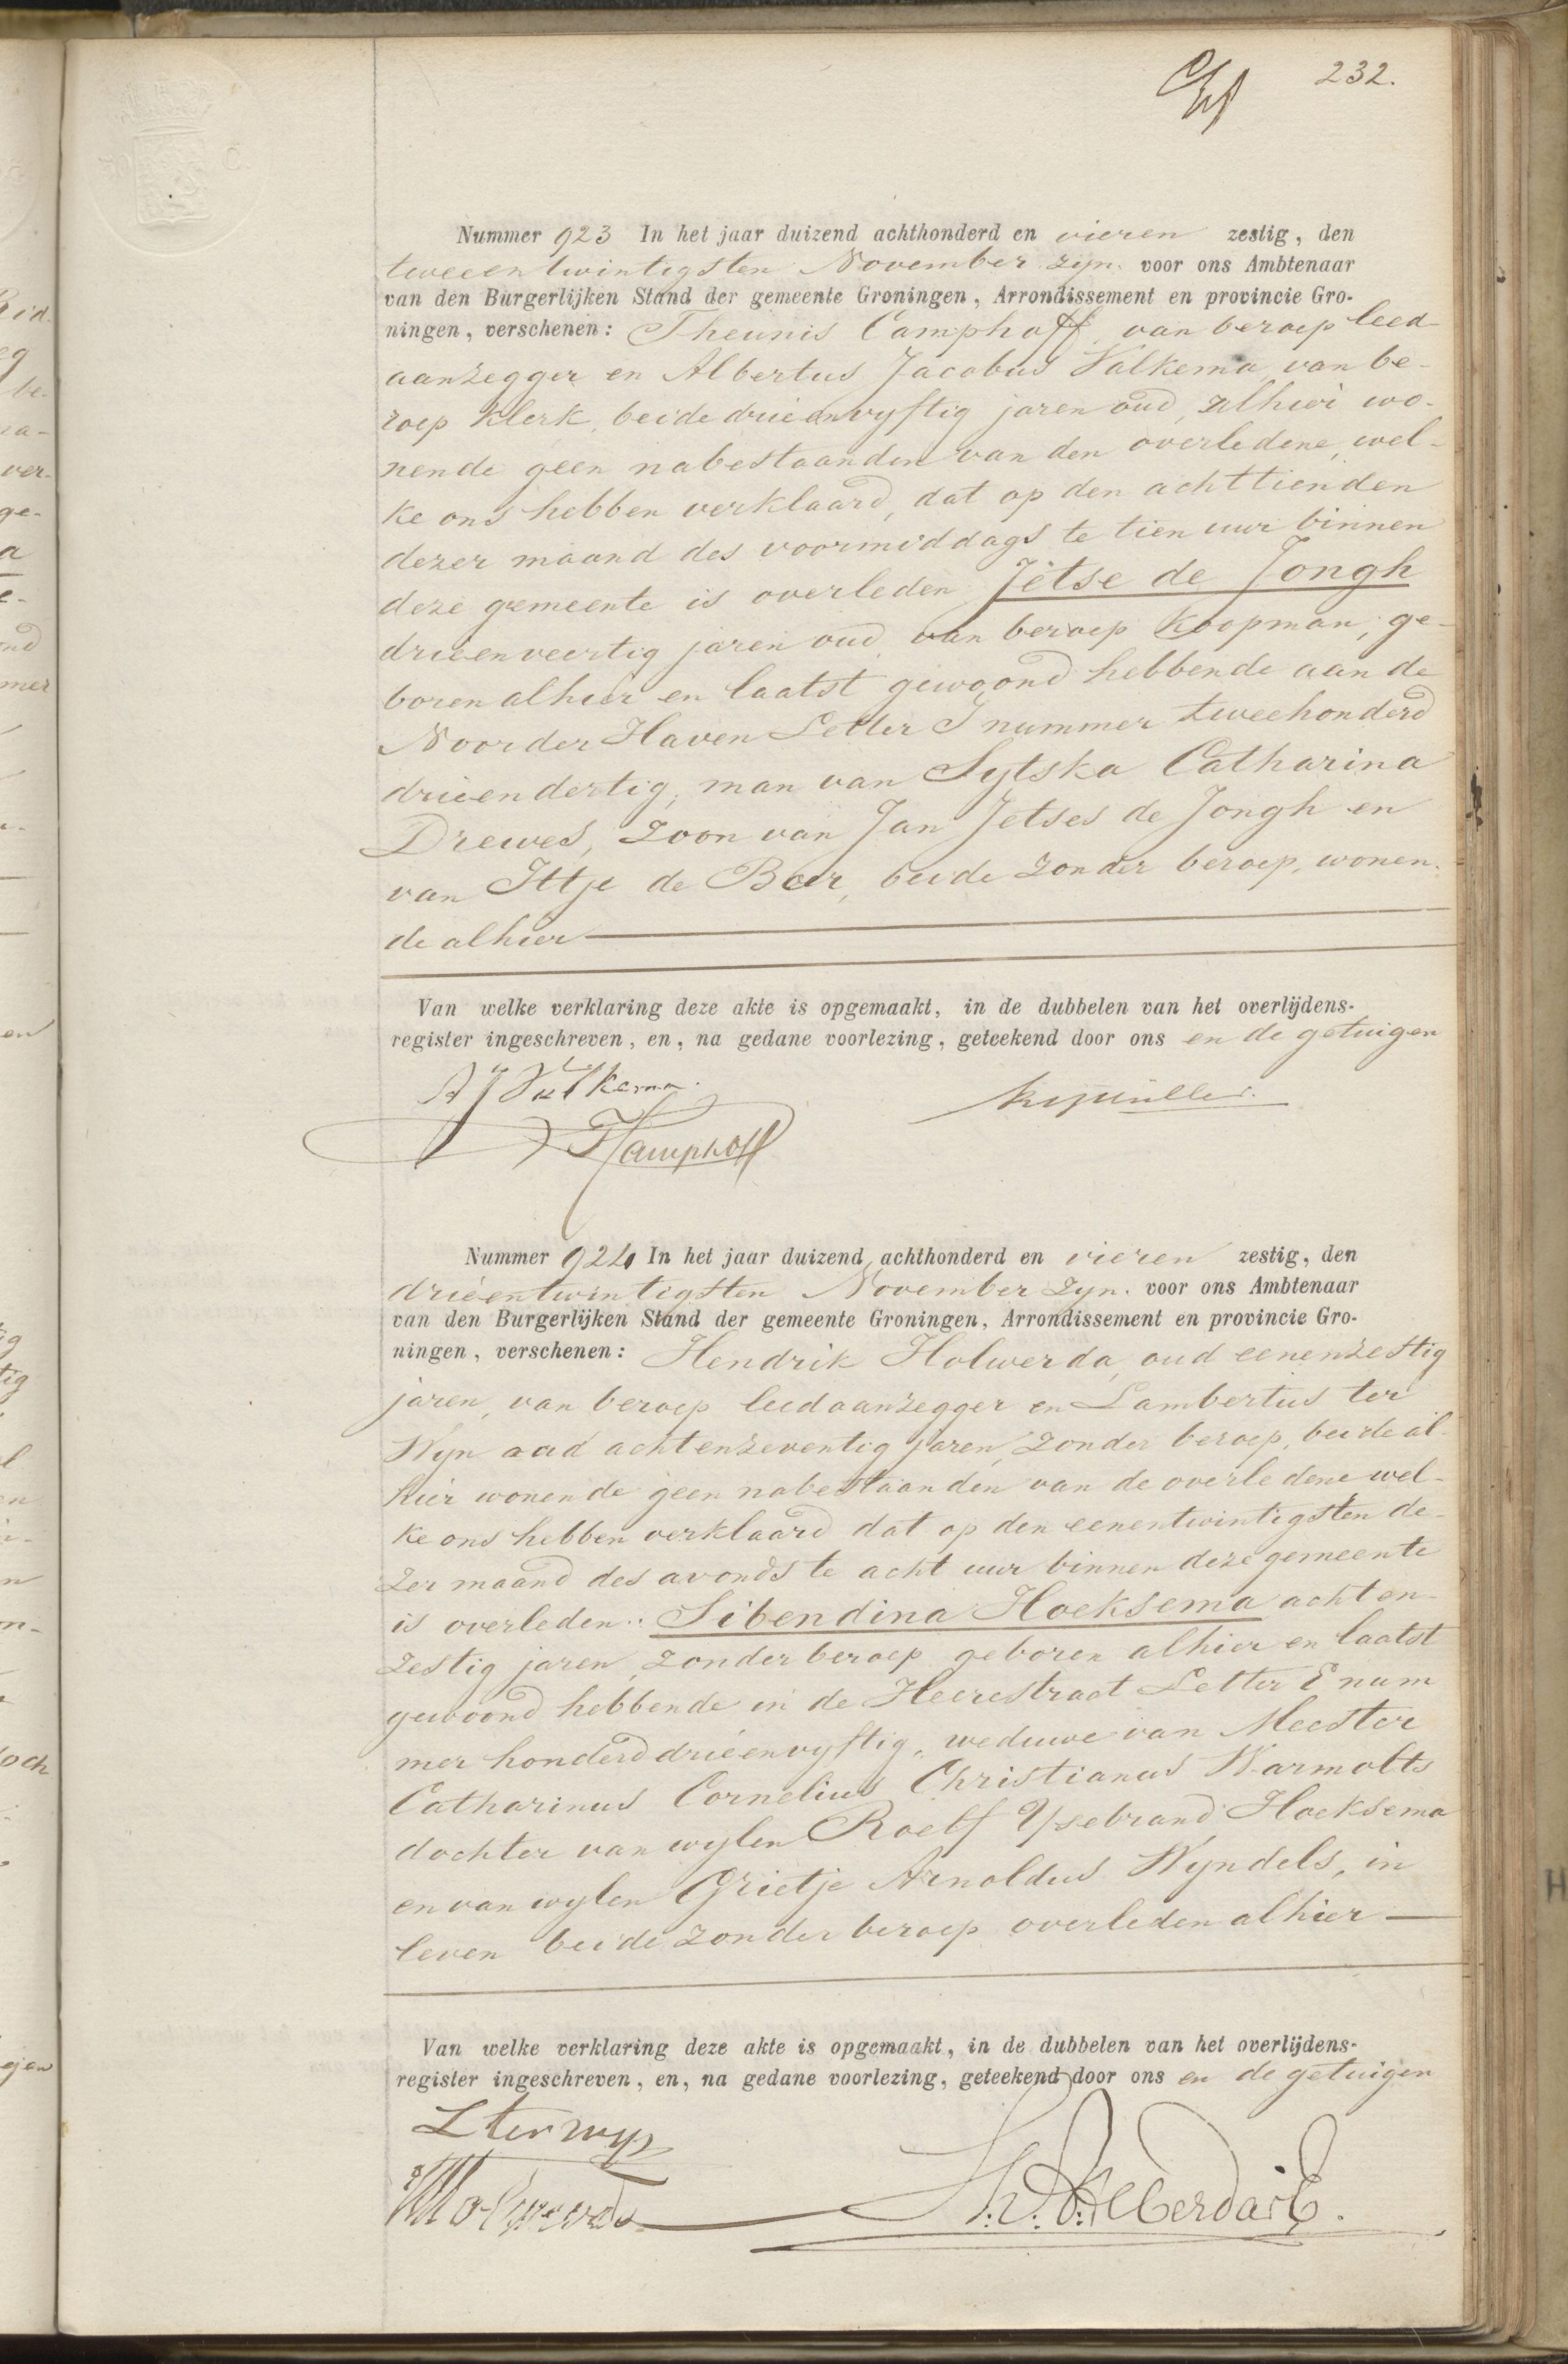 232.
Nummer 923 In het jaar duizend achthonderd en vieren zestig, den
tweeentwintigsten November zijn voor ons Ambtenaar
van den Burgerlijken Stand der gemeente Groningen, Arrondissement en provincie Gro-
ningen, verschenen: Theunis Camphoff, van beroep leed-
aanzegger en Albertus Jacobus Valkema, van be-
roep klerk, beide drieenvyftig jaren oud, alhier wo-
nende geen nabestaanden van den overledene, wel-
ke ons hebben verklaard, dat op den achttienden
dezer maand des voormiddags te tien uur binnen
deze gemeente is overleden Jetse de Jongh
drieenveertig jaren oud, van beroep koopman, ge-
boren alhier en laatst gewoond hebbende aan de
Noorder Haven Letter I nummer tweehonderd
drieendertig, man van Sytska Catharina
Drewes, zoon van Jan Jetses de Jongh en
van Ittje de Boer, beide zonder beroep, wonen-
de alhier
Van welke verklaring deze akte is opgemaakt, in de dubbelen van het overlijdens-
register ingeschreven, en, na gedane voorlezing, geteekend door ons en de getuigen
A J Valkema.
TCamphoff
Nummer 924 In het jaar duizend achthonderd en vieren zestig, den
drieentwintigsten November zyn. voor ons Ambtenaar
van den Burgerlijken Stand der gemeente Groningen, Arrondissement en provincie Gro-
ningen, verschenen: Hendrik Holwerda, oud eenenzestig
jaren, van beroep leedaanzegger en Lambertus ter
Wyn oud achtenzeventig jaren, zonder beroep, beide al-
hier wonende geen nabestaanden van de overledene wel-
ke ons hebben verklaard dat op den eenentwintigsten de-
zer maand des avonds te acht uur binnen deze gemeente
is overleden: Sibendina Hoeksema achten-
zestig jaren, zonder beroep geboren alhier en laatst
gewoond hebbende in de Heerestraat Letter E num
mer honderddrieenvyftig, weduwe van Meester
Catharinus Cornelius Christianus Warmolts
dochter van wylen Roelf Ysebrand Hoeksema
en van wylen Grietje Arnoldus Wyndels, in
leven beide zonder beroep overleden alhier
Van welke verklaring deze akte is opgemaakt, in de dubbelen van het overlijdens-
register ingeschreven, en, na gedane voorlezing, geteekend door ons en de getuigen
L ter wyn
HHolwerda